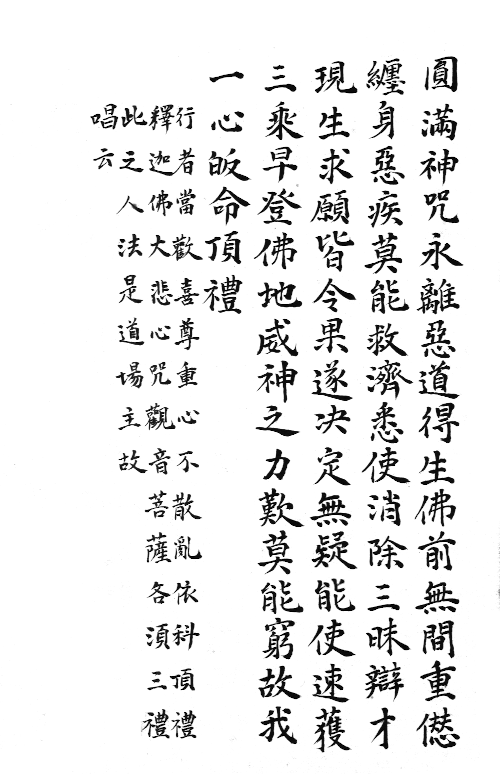 圓滿神咒永離惡道得生佛前無間重愆
纏身惡疾莫能救濟悉使消除三昧辯才
現生求願皆令果遂決定無疑能使速獲
三乘早登佛地威神之力歎莫能窮故我
一心皈命頂禮
行者當歡喜尊重心不散亂依科頂禮
釋迦佛大悲心咒觀音菩薩各須三禮
此之人法是道場主故
唱云